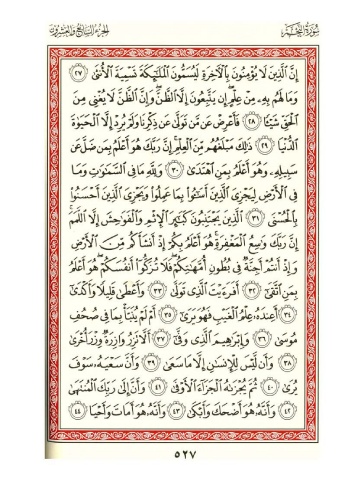 سُورَةُ النَّجْمِ الجُزْءُ السَّابِعُ وَالعِشْرُونَ
إِنَّ الَّذِينَ لَا يُؤْمِنُونَ بِالْآخِرَةِ لَيُسَمُّونَ الْمَلَائِكَةَ تَسْمِيَةَ الْأُنْثَى ٢٧
وَمَا لَهُمْ بِهِ مِنْ عِلْمٍ إِنْ يَتَّبِعُونَ إِلَّا الظَّنَّ وَإِنَّ الظَّنَّ لَا يُغْنِي مِنَ
الْحَقِّ شَيْئًا ٢٨ فَأَعْرِضْ عَنْ مَنْ تَوَلَّى عَنْ ذِكْرِنَا وَلَمْ يُرِدْ إِلَّا الْحَيَوةَ
الدُّنْيَا ٢٩ ذَلِكَ مَبْلَغُهُمْ مِنَ الْعِلْمِ إِنَّ رَبَّكَ هُوَ أَعْلَمُ بِمَنْ ضَلَّ عَنْ
سَبِيلِهِ وَهُوَ أَعْلَمُ بِمَنِ اهْتَدَى ٣٠ وَلِلَّهِ مَا فِي السَّمَوَاتِ وَمَا
فِي الْأَرْضِ لِيَجْزِيَ الَّذِينَ أَسَاءُوا بِمَا عَمِلُوا وَيَجْزِيَ الَّذِينَ أَحْسَنُوا
بِالْحُسْنَى ٣١ الَّذِينَ يَجْتَنِبُونَ كَبَائِرَ الْإِثْمِ وَالْفَوَاحِشَ إِلَّا اللَّمَمَ
إِنَّ رَبَّكَ وَاسِعُ الْمَغْفِرَةِ هُوَ أَعْلَمُ بِكُمْ إِذْ أَنْشَأَكُمْ مِنَ الْأَرْضِ
وَإِذْ أَنْتُمْ أَجِنَّةٌ فِي بُطُونِ أُمَّهَاتِكُمْ فَلَا تُزَكُّوا أَنْفُسَكُمْ هُوَ أَعْلَمُ
بِمَنِ اتَّقَى ٣٢ أَفَرَءَيْتَ الَّذِي تَوَلَّى ٣٣ وَأَعْطَى قَلِيلًا وَأَكْدَى
٣٤ أَعِنْدَهُ عِلْمُ الْغَيْبِ فَهُوَ يَرَى ٣٥ أَمْ لَمْ يُنَبَّأْ بِمَا فِي صُحُفِ
مُوسَى ٣٦ وَإِبْرَاهِيمَ الَّذِي وَفَّى ٣٧ أَلَّا تَزِرُ وَازِرَةٌ وِزْرَ أُخْرَى
٣٨ وَأَنْ لَيْسَ لِلْإِنْسَانِ إِلَّا مَا سَعَى ٣٩ وَأَنَّ سَعْيَهُ سَوْفَ
يُرَى ٤٠ ثُمَّ يُجْزَاهُ الْجَزَاءَ الْأَوْفَى ٤١ وَأَنَّ إِلَى رَبِّكَ الْمُنْتَهَى
٤٢ وَأَنَّهُ هُوَ أَضْحَكَ وَأَبْكَى ٤٣ وَأَنَّهُ هُوَ أَمَاتَ وَأَحْيَا ٤٤
٥٢٧